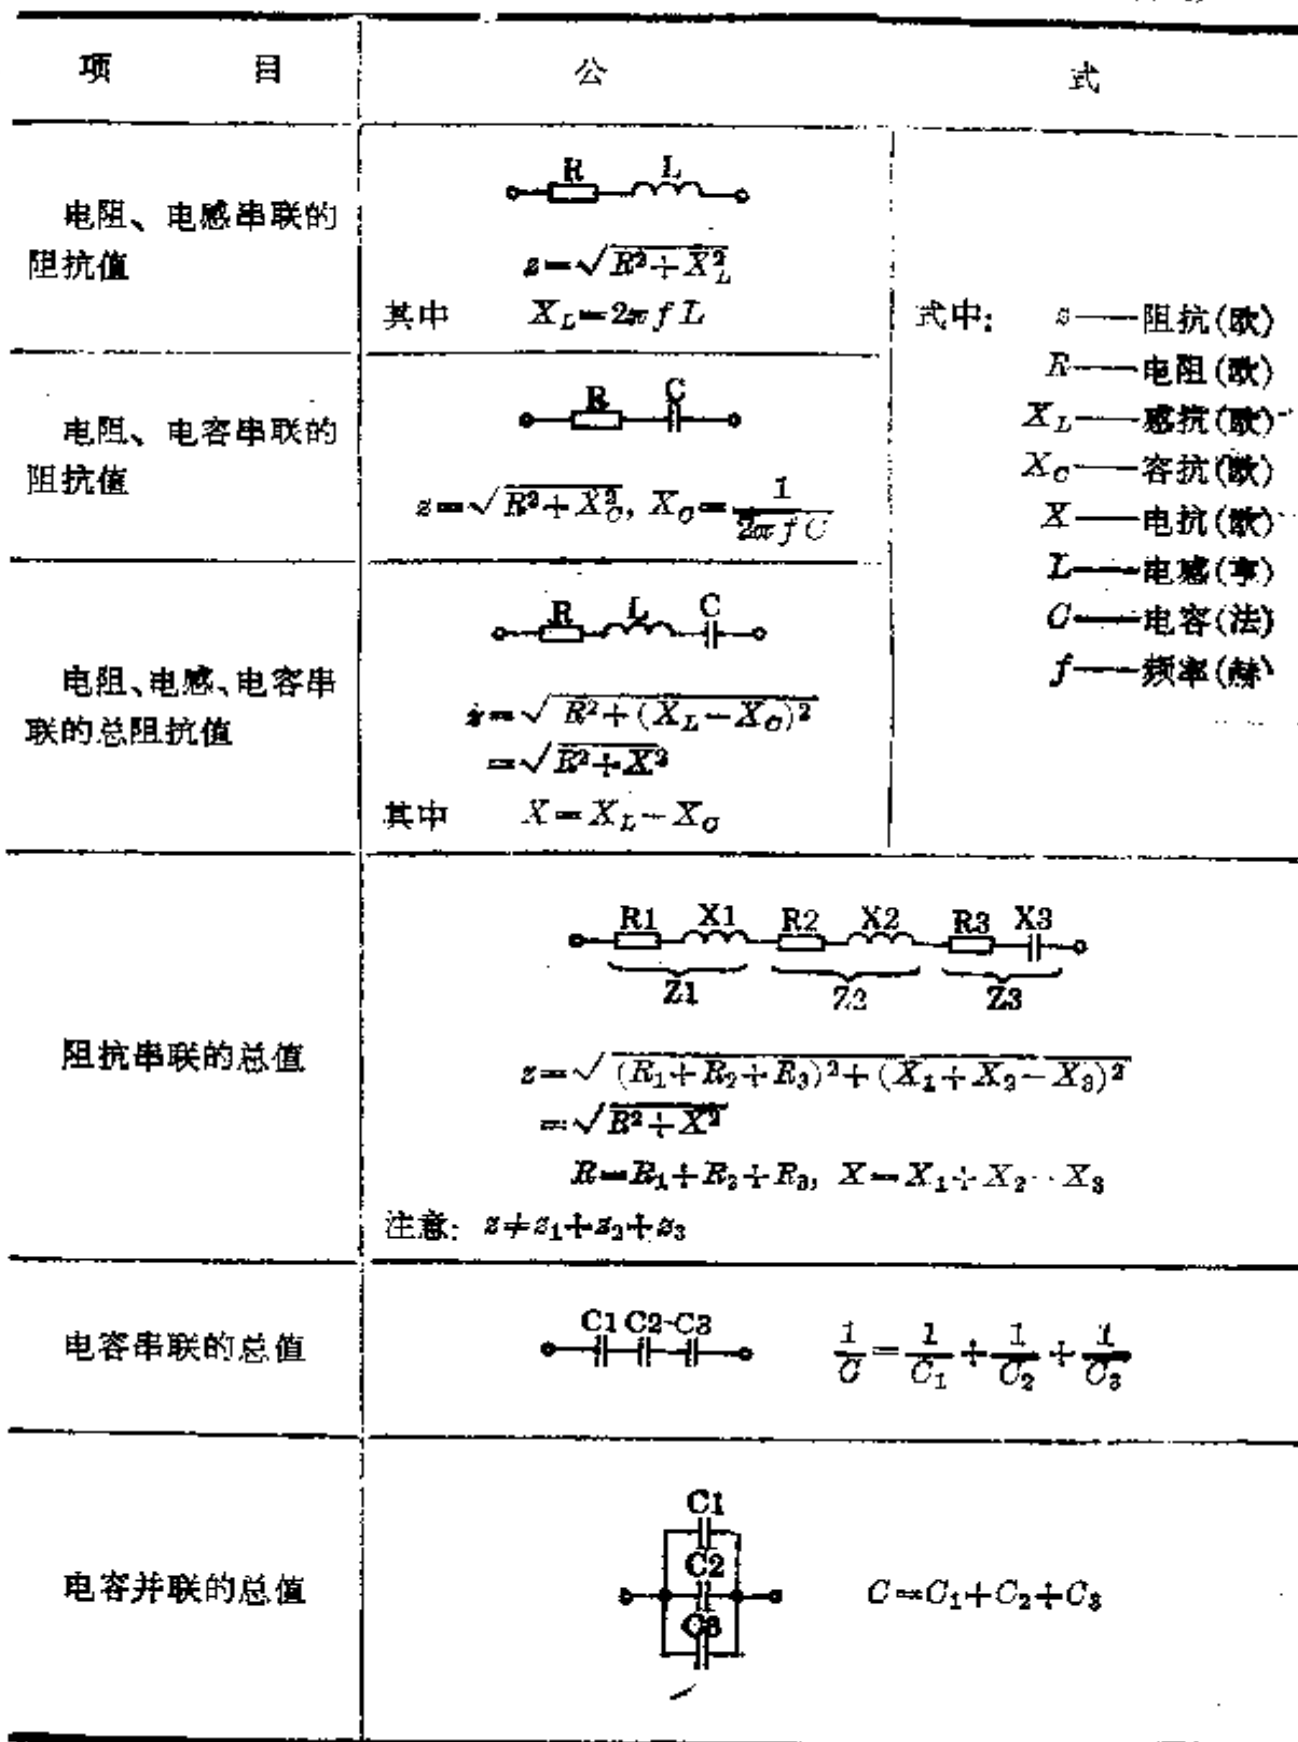 项 目 公 式
电阻、电感串联的
阻抗值
R L
z=√R²+X_L²
其中 X_L=2πfL
式中: z——阻抗(欧)
R——电阻(欧)
X_L——感抗(欧)
X_C——容抗(欧)
X——电抗(欧)
L——电感(亨)
C——电容(法)
f——频率(赫)
电阻、电容串联的
阻抗值
R C
z=√R²+X_C², X_C=1/2πfC
电阻、电感、电容串
联的总阻抗值
R L C
z=√R²+(X_L-X_C)²
=√R²+X²
其中 X=X_L-X_C
阻抗串联的总值
R1 X1 R2 X2 R3 X3
Z1 Z2 Z3
z=√(R₁+R₂+R₃)²+(X₁+X₂-X₃)²
=√R²+X²
R=R₁+R₂+R₃, X=X₁+X₂-X₃
注意: z≠z₁+z₂+z₃
电容串联的总值
C1 C2 C3
1/C=1/C₁+1/C₂+1/C₃
电容并联的总值
C1
C2
C3
C=C₁+C₂+C₃